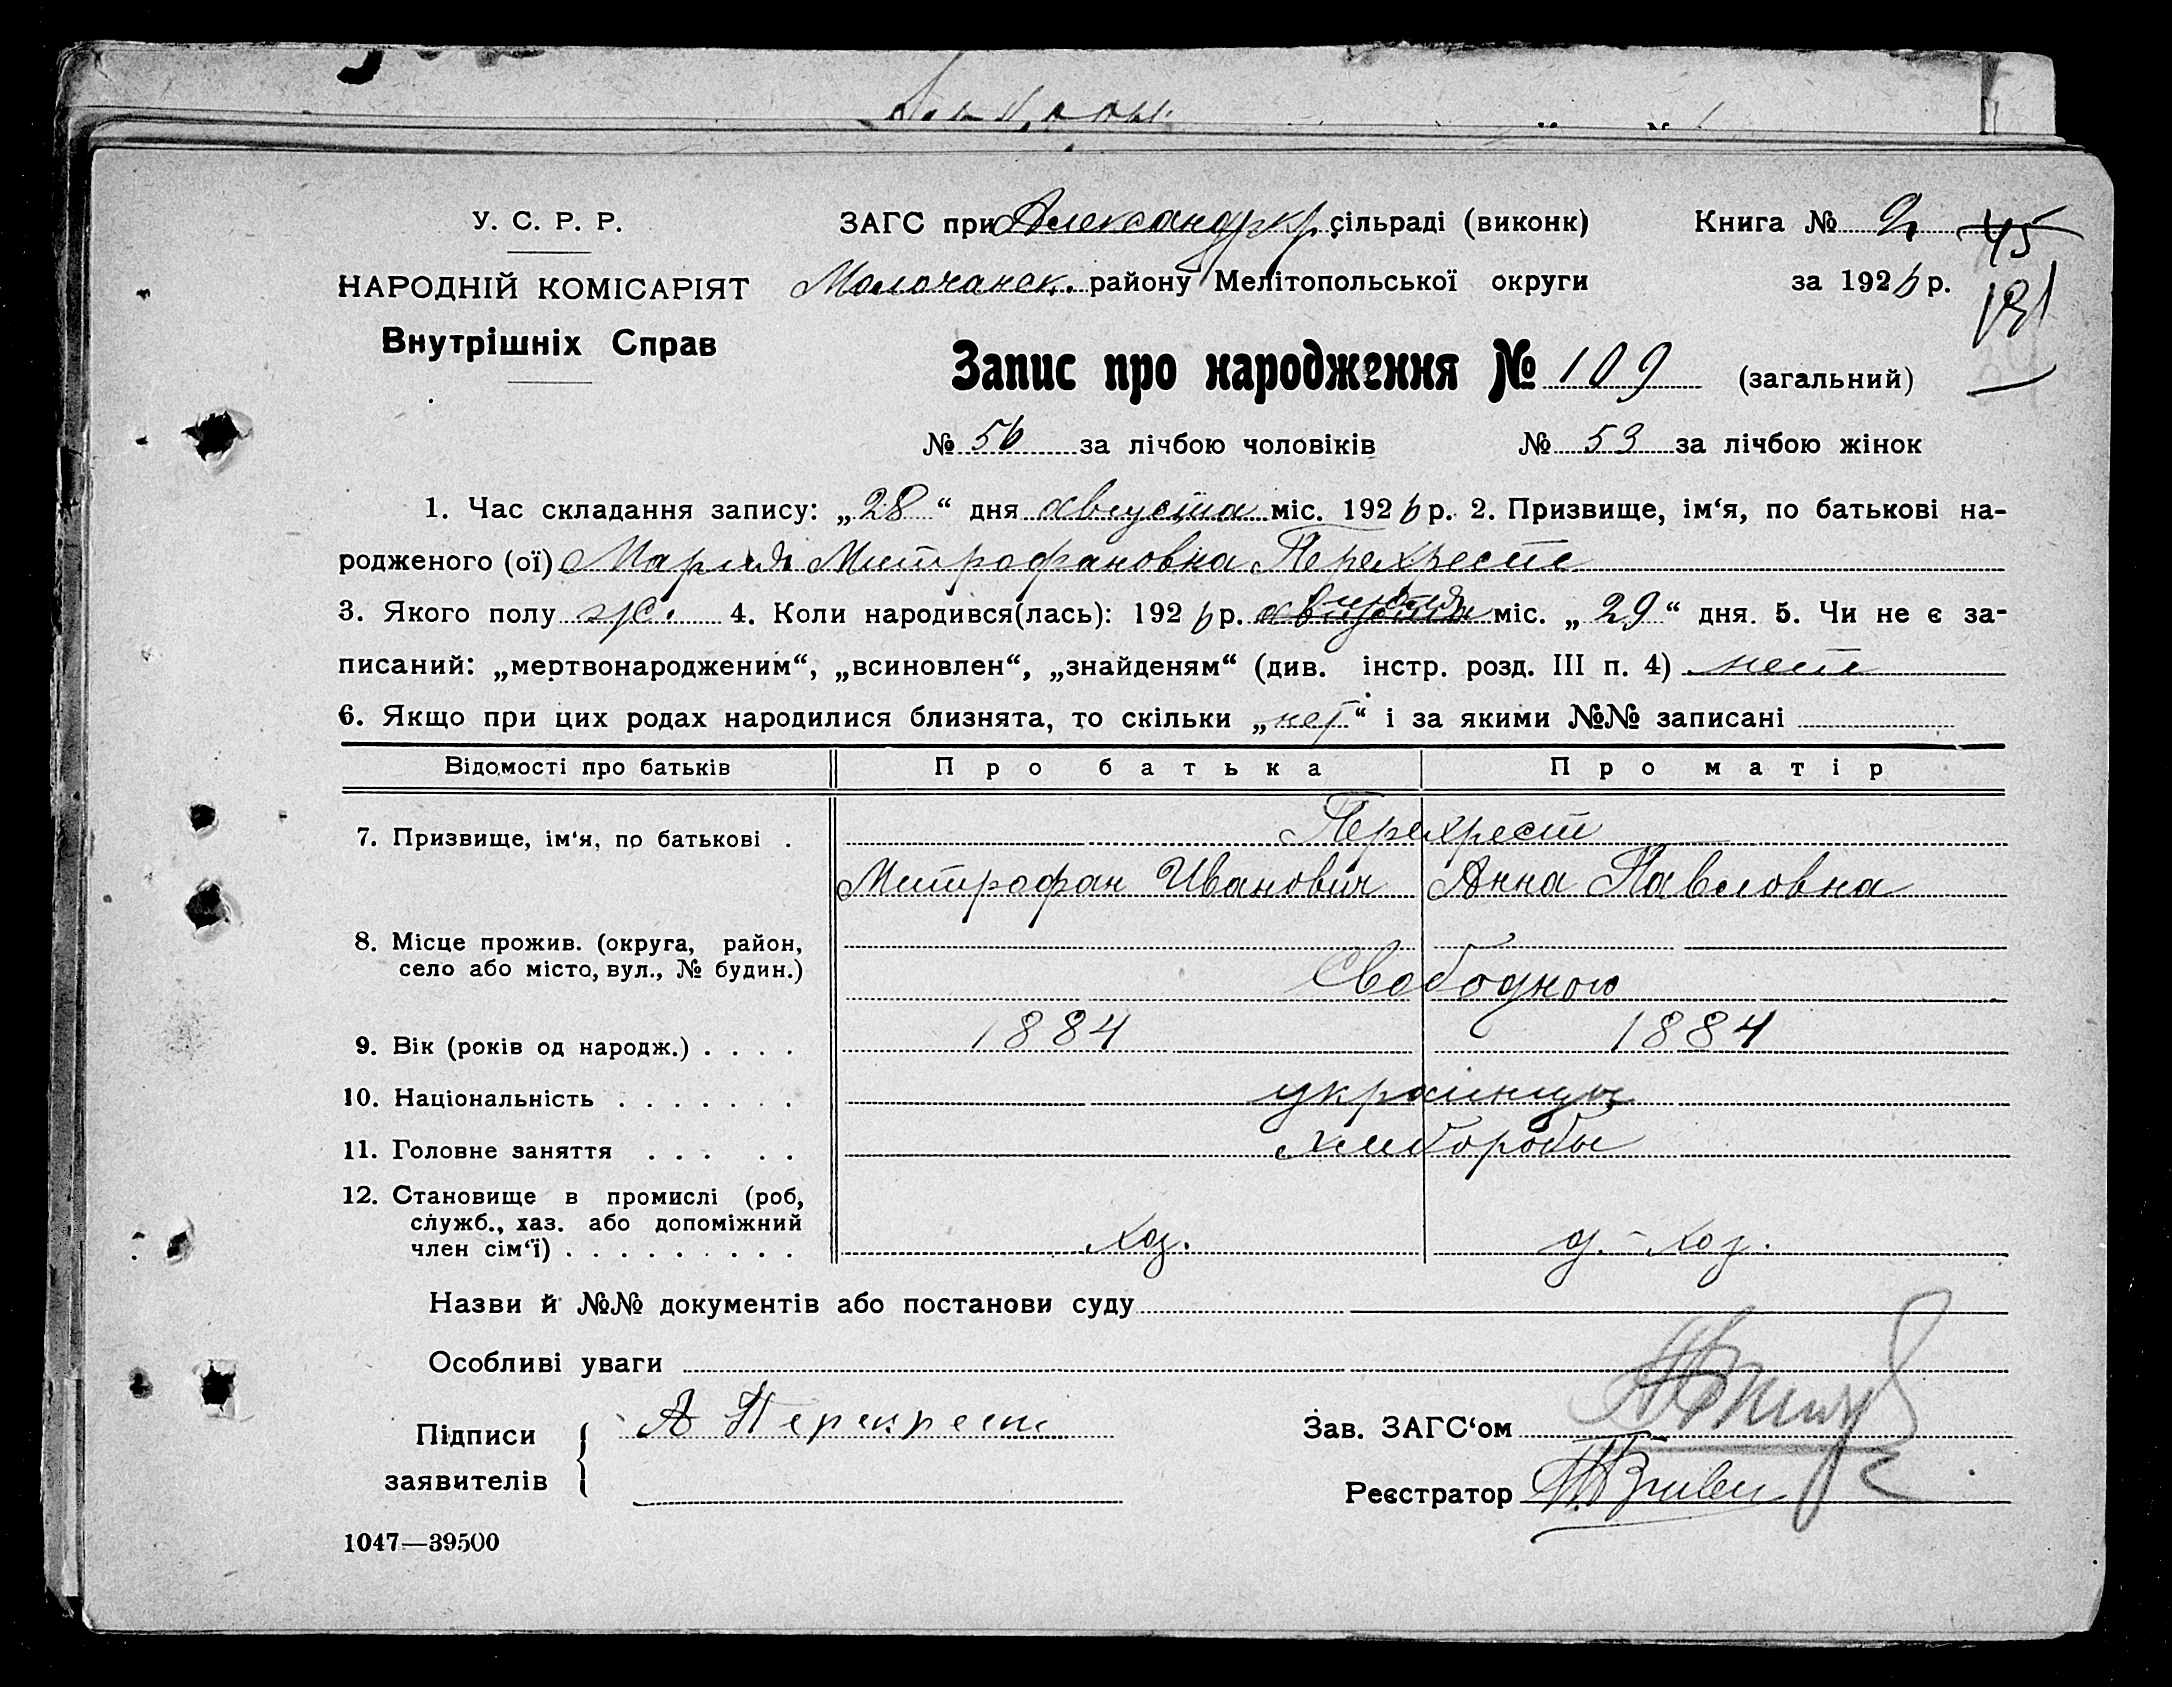 У. С. Р. Р.
НАРОДНІЙ КОМІСАРІЯТ
Внутрішніх Справ
ЗАГС при Александркр. сільраді (виконк)
Молочанск. району Мелітопольської округи
Книга № 2
за 1926 р.
45
Запис про народження № 109 (загальний)
№ 56 за лічбою чоловіків № 53 за лічбою жінок
1. Час складання запису: „28“ дня августа міс. 1926 р. 2. Призвище, ім‘я, по батькові на-
родженого (ої) Мария Митрофановна Перехрест
3. Якого полу ж. 4. Коли народився(лась): 1926 р. августа міс. „29“ дня. 5. Чи не є за-
писаний: „мертвонародженим“, „всиновлен“, „знайденям“ (див. інстр. розд. III п. 4) нет
6. Якщо при цих родах народилися близнята, то скільки „нет“ і за якими №№ записані
Відомості про батьків Про батька Про матір
7. Призвище, ім‘я, по батькові . Перехрест
Митрофан Иванович Анна Павловна
8. Місце прожив. (округа, район,
село або місто, вул., № будин.)
Свободною
9. Вік (років од народж.) . . . . 1884 1884
10. Національність . . . . . . . украинцы
11. Головне заняття . . . . . хлиборобы
12. Становище в промислі (роб,
служб., хаз. або допоміжний
член сім‘ї) . . . . . . . . . хоз. д.-хоз.
Назви й №№ документів або постанови суду
Особливі уваги
Підписи
заявителів
А Перекрест
Зав. ЗАГС‘ом
Реєстратор
1047—39500